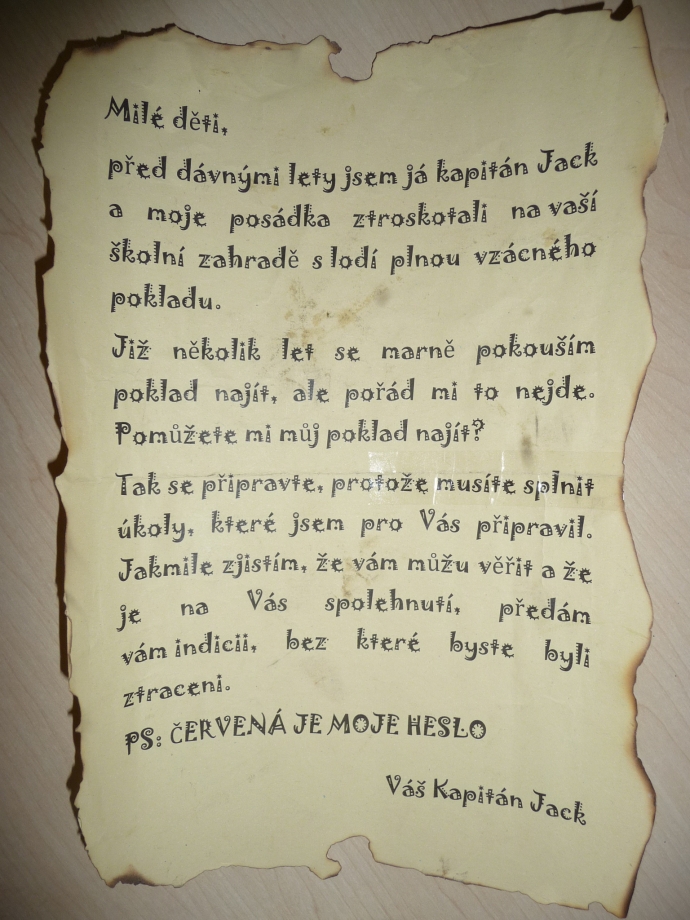 Milé děti,
před dávnými lety jsem já kapitán Jack
a moje posádka ztroskotali na vaší
školní zahradě s lodí plnou vzácného
pokladu.
Již několik let se marně pokouším
poklad najít, ale pořád mi to nejde.
Pomůžete mi můj poklad najít?
Tak se připravte, protože musíte splnit
úkoly, které jsem pro Vás připravil.
Jakmile zjistím, že vám můžu věřit a že
je na Vás spolehnutí, předám
vám indicii, bez které byste byli
ztraceni.
PS: ČERVENÁ JE MOJE HESLO
Váš Kapitán Jack